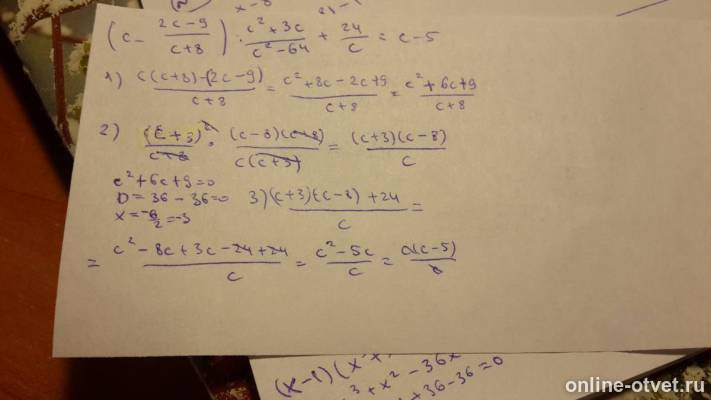 x-8
(c - \frac{2c-9}{c+8}) \cdot \frac{c^2+3c}{c^2-64} + \frac{24}{c} = c-5
1) \frac{c(c+8)-(2c-9)}{c+8} = \frac{c^2+8c-2c+9}{c+8} = \frac{c^2+6c+9}{c+8}
2) \frac{(c+3)^2}{c+8} \cdot \frac{(c-8)(c+8)}{c(c+3)} = \frac{(c+3)(c-8)}{c}
c^2+6c+9=0
D=36-36=0
x=\frac{-6}{2}=-3
3) \frac{(c+3)(c-8)+24}{c} =
= \frac{c^2-8c+3c-24+24}{c} = \frac{c^2-5c}{c} = \frac{c(c-5)}{c}
(x-1)(x^2+
^3+x^2-36x
+36-36=0
online-otvet.ru